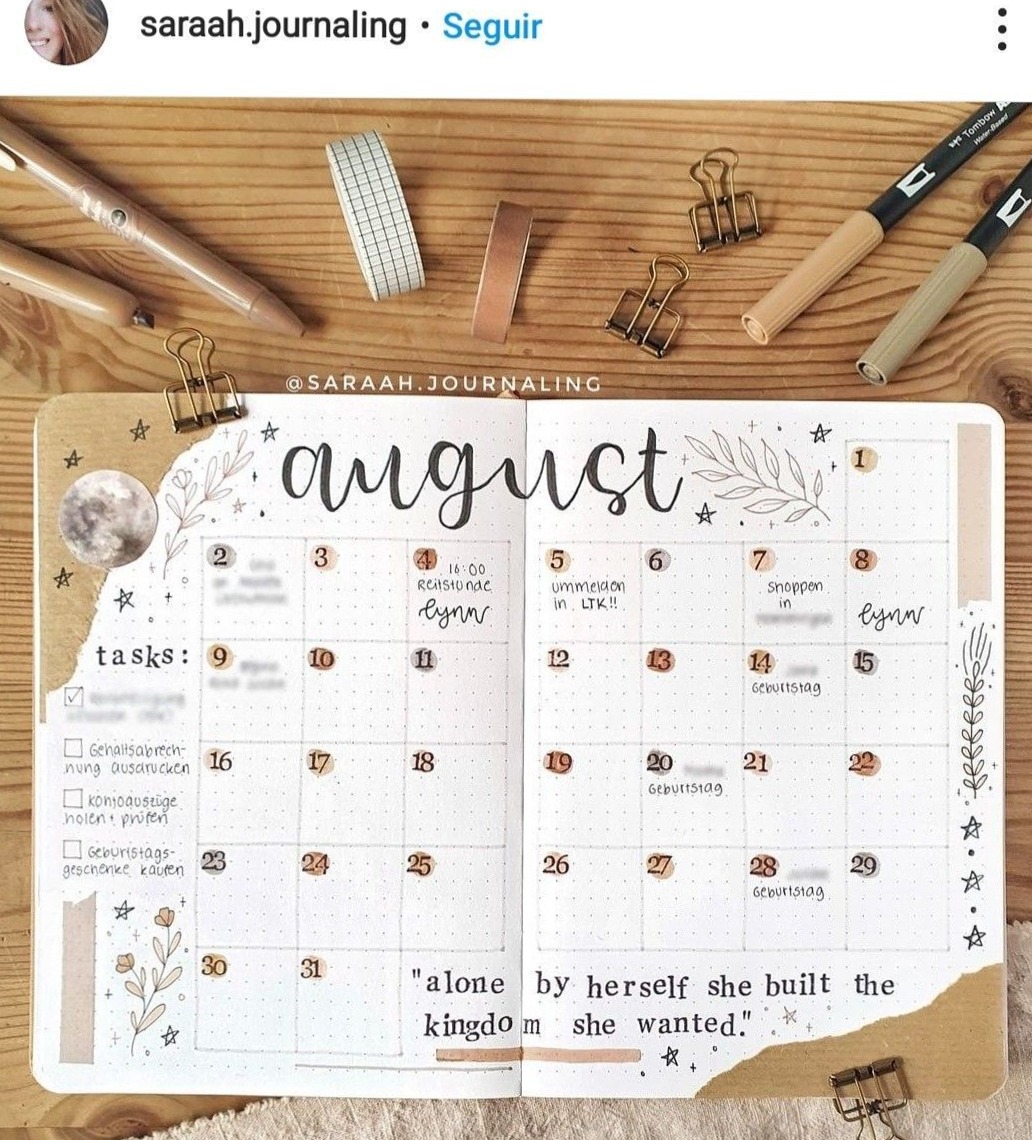 saraah.journaling • Seguir
Tombow
Water-Based
@SARAAH.JOURNALING
august
1
2
3
4 16:00
Reitstunde
lynn
5
ummelden
in LTK!!
6
7
shoppen
in
8
lynn
tasks:
Gehaltsabrech-
nung ausdrucken
Kontoauszüge
holen + prüfen
Geburtstags-
geschenke kaufen
9
10
11
12
13
14
Geburtstag
15
16
17
18
19
20
Geburtstag
21
22
23
24
25
26
27
28
Geburtstag
29
30
31
"alone by herself she built the
kingdom she wanted."